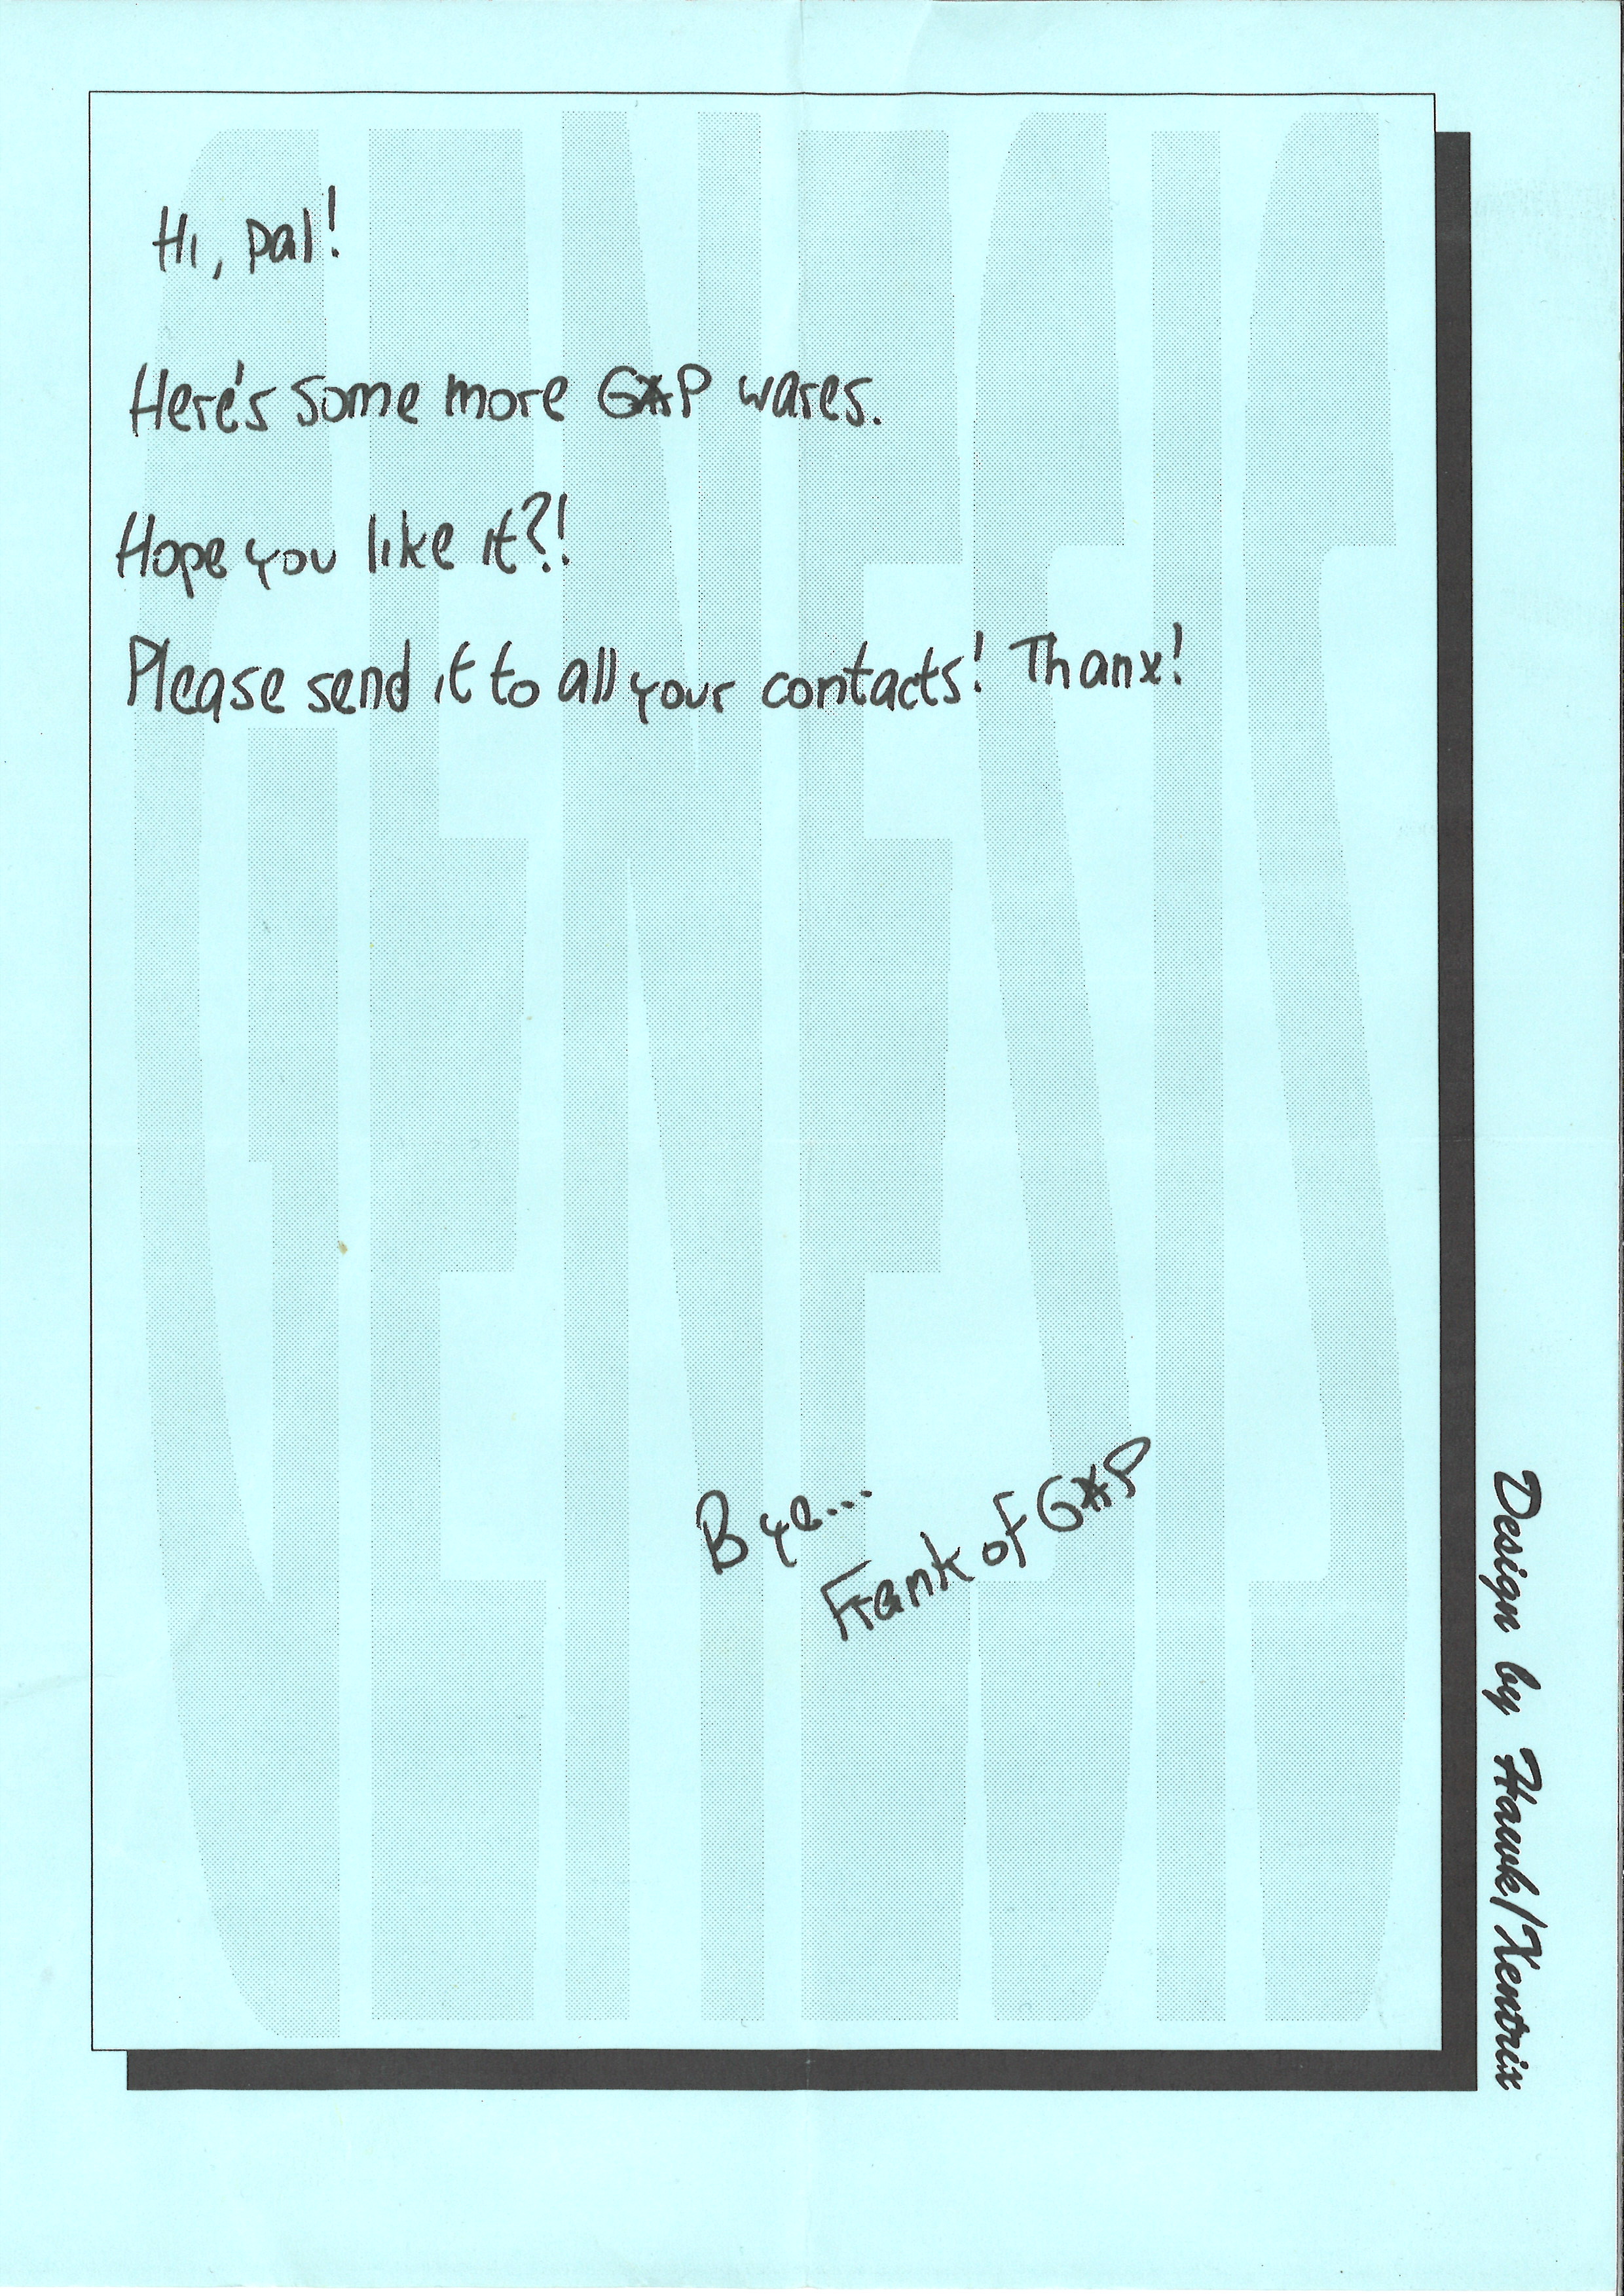 GENESIS
Hi, pal!
Here's some more G*P wares.
Hope you like it?!
Please send it to all your contacts! Thanx!
Bye...
Frank of G*P
Design by Hawk/Xentrix